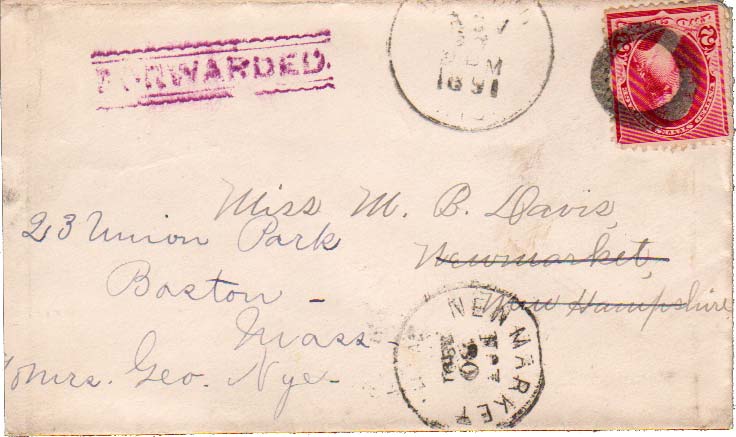 FORWARDED.
1891
Miss M. B. Davis,
Newmarket,
New Hampshire
23 Union Park
Boston -
Mass -
Mrs. Geo. Nye -
NEWMARKET
30
1891
UNITED STATES
2